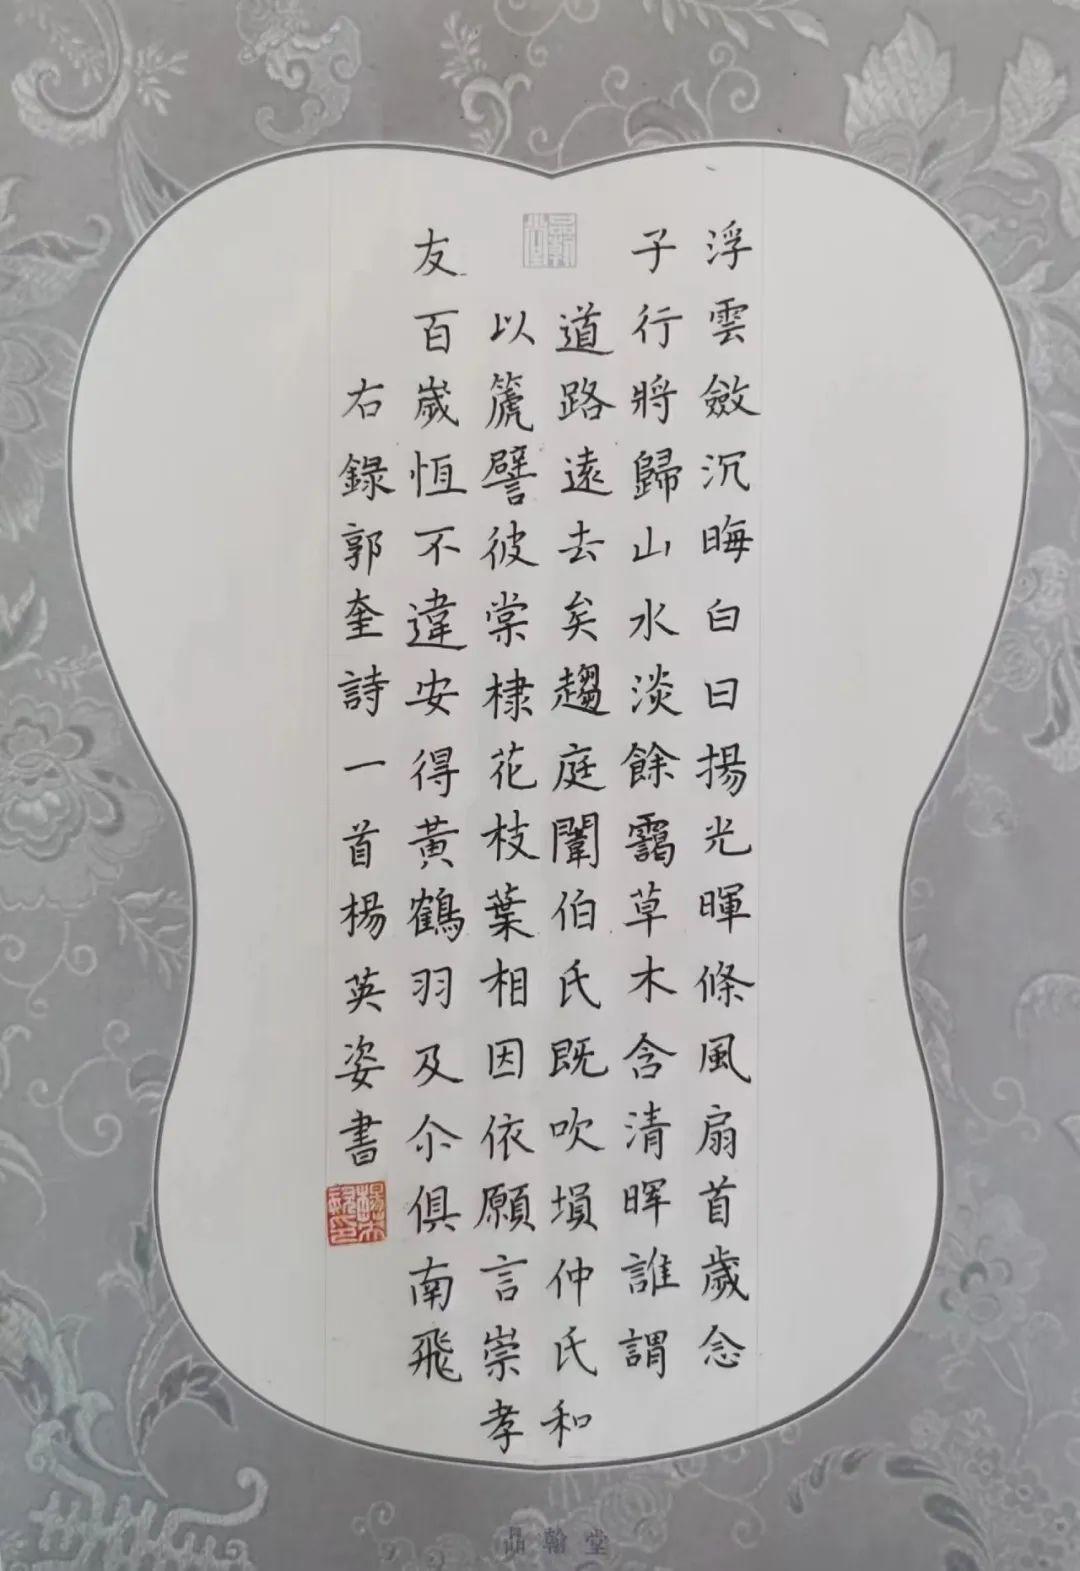 浮雲斂沉晦白日揚光暉條風扇首歲念
子行將歸山水淡餘靄草木含清暉誰謂
道路遠去矣趨庭闈伯氏既吹塤仲氏和
以篪譬彼棠棣花枝葉相因依願言崇孝
友百歲恆不違安得黃鶴羽及尒俱南飛
右錄郭奎詩一首楊英姿書
品翰堂